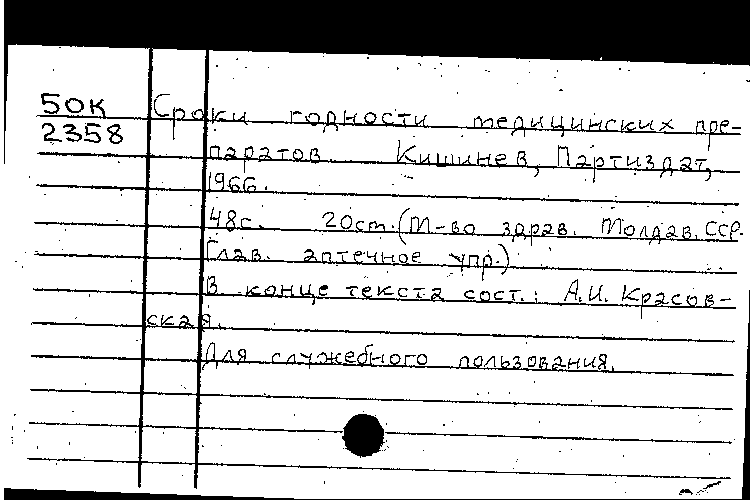 50К Сроки годности медицинских пре-
2358 паратов Кишинев, Партиздат,
1966.
48с. 20см. (М-во здрав. Молдав. ССР.
Глав. аптечное упр.)
В конце текста сост.: А.И. Красов-
ская.
Для служебного пользования.